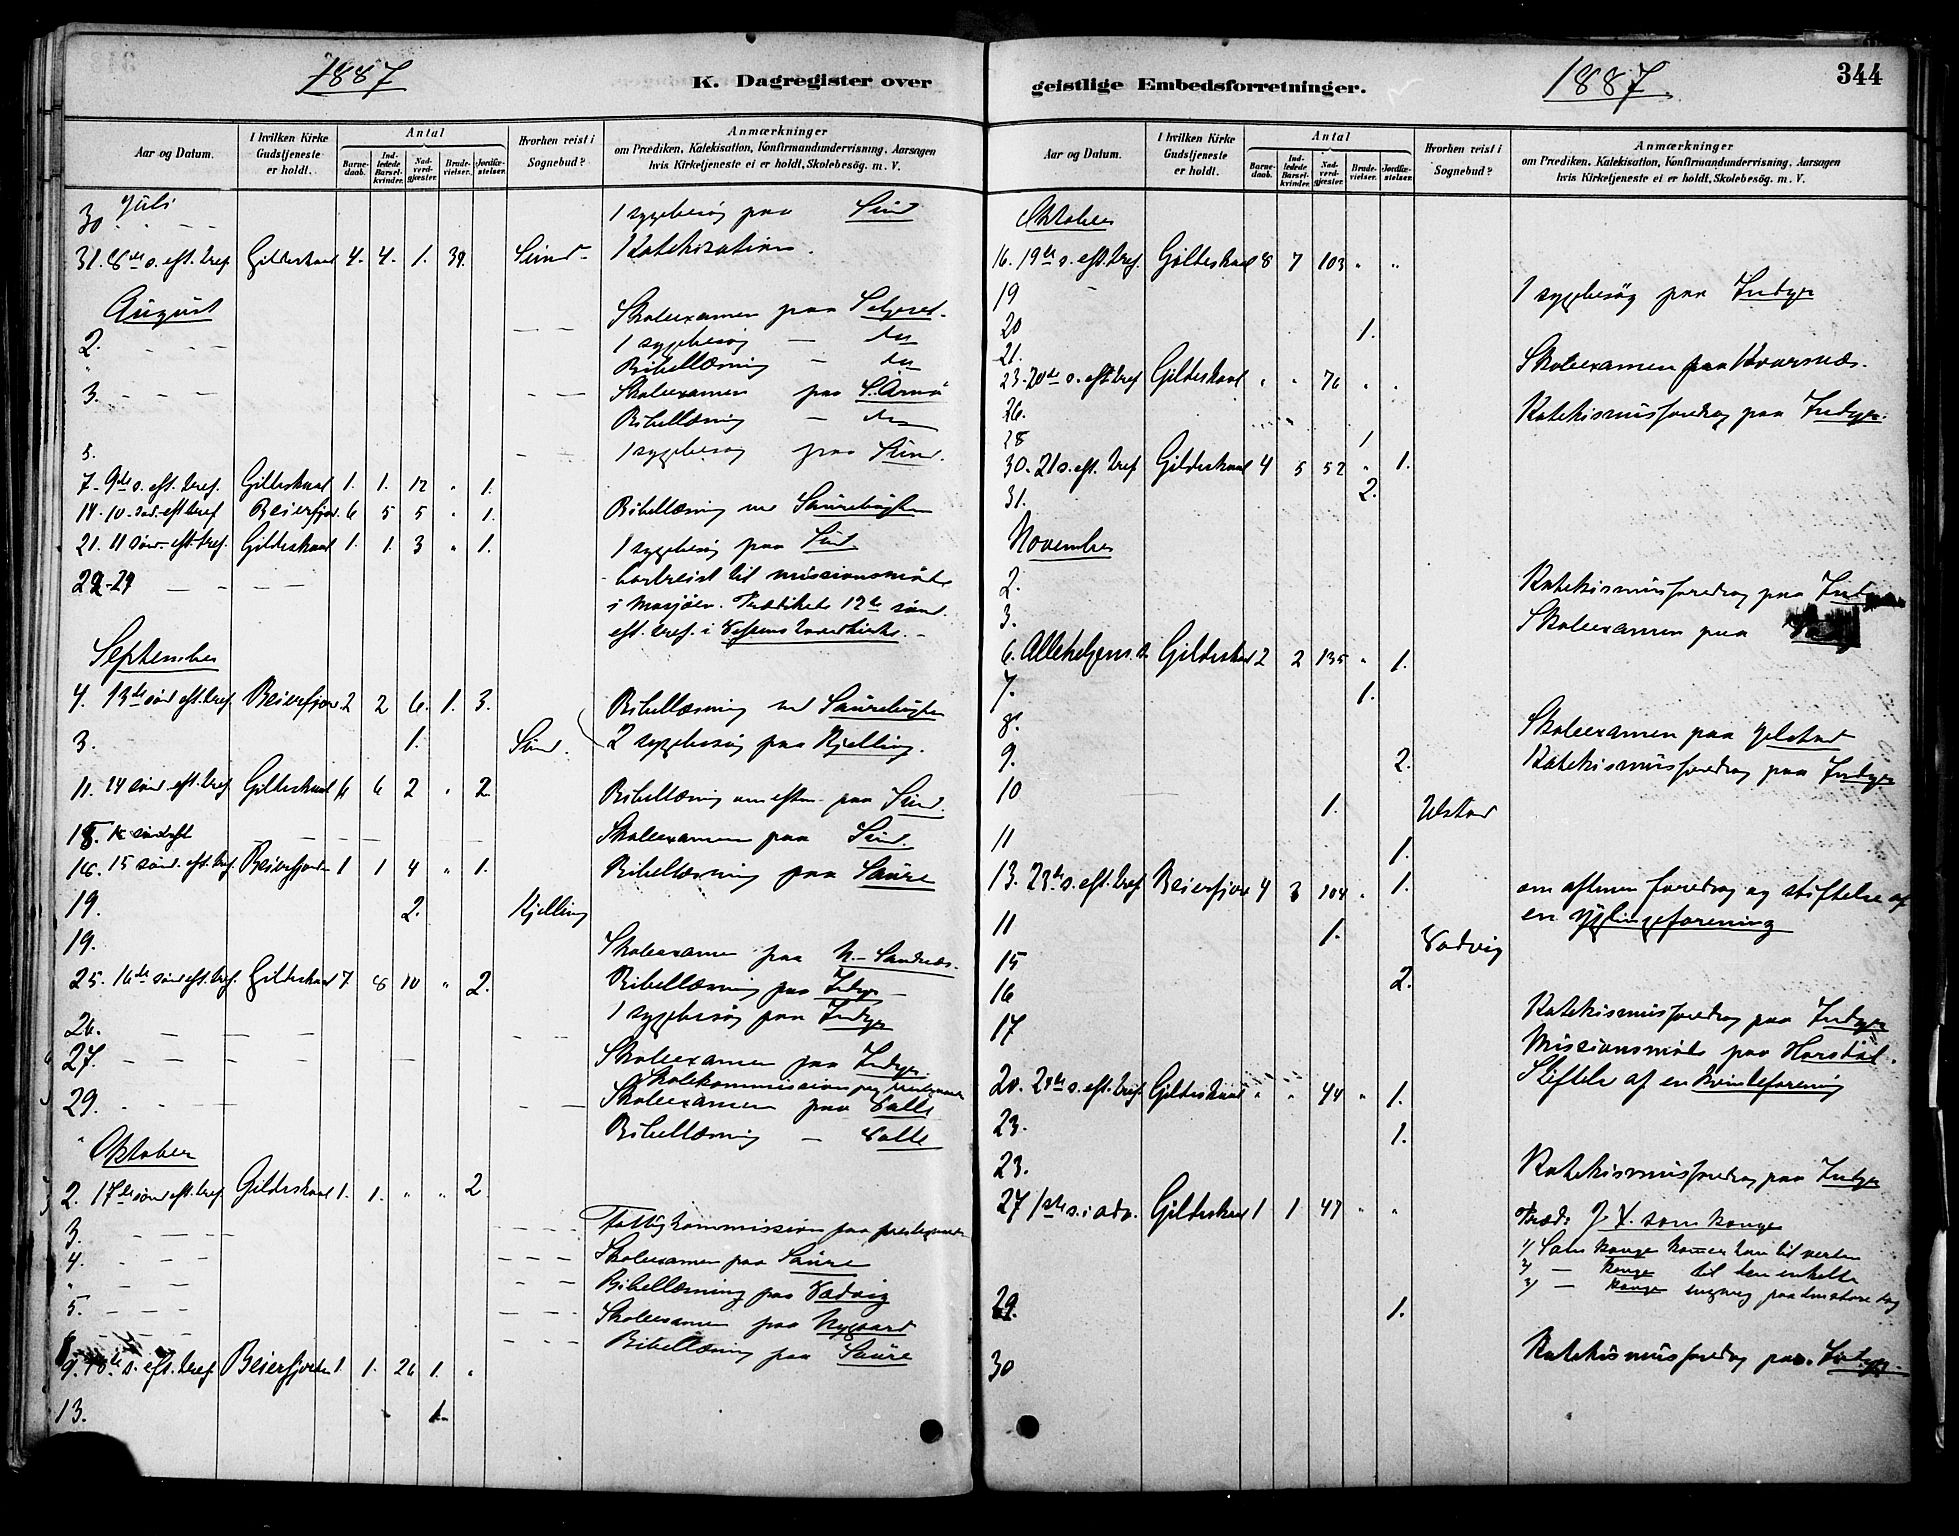 1887
K. Dagregister over
Aar og Datum.
I hvilken Kirke Gudstjeneste er holdt.
Antal
Barnedaab.
Indledede Barselkvinder.
Nadverdgjæster.
Brudevielser.
Jordfæstelser.
Hvorhen reist i Sognebud?
Anmærkninger
om Prædiken, Katekisation, Konfirmandundervisning, Aarsagen
hvis Kirketjeneste ei er holdt, Skolebesøg. m. V.
Juli
30 1 sygebesøg paa Sund
31. 8de s. eft. tref. Gildeskaal 4. 4. 1. 39. Sund Katekisation.
August
Skoleexamen paa
2. 1 sygebesøg — do
" Bibellæsning — do
3. Skoleexamen paa S. Arnø
Bibellæsning — do
5. 1 sygebesøg paa Sund.
7. 9de s. eft. tref. Gildeskaal 1. 1. 12 " 1.
14. 10. sød. eft tref Beierfjor 6 5 5 " 1. Bibellæsning ved Saurebugten
21. 11 sønd. eft. tref. Gildeskaal 1. 1. 3 " 1. 1 sygebesøg paa Sund
22-29 bortreist til missionsmøde
i Mosjøen. Prædikede 12te sønd.
eft. tref. i
September
4. 13de sønd eft. tref. Beierfjor 2 2 6. 1. 3. Bibellæsning ved Saurebugten
3. 1. Sund. 2 sygebesøg paa Kjelling.
11. 14 sønd. eft. tref Gildeskaal 6 2 " 2 Bibellæsning om eftm. paa Sund.
Skoleexamen paa Sund.
15 sønd. eft. tref. Beierfjorden 1 1 4 " 1. Bibellæsning paa Saure
19. 2. Kjelling
19. Skoleexamen paa N. Sandnes.
25. 16de sønd eft. tref. Gildeskaal 7. 8 10 " 2. Bibellæsning paa Indyr
26. 1 sygebesøg paa Indyr
27. Skoleexamen paa Indyr.
Skolekommission paa
29. Skoleexamen paa Valle
" Bibellæsning — Valle
Oktober
2. 17de sønd eft. tref. Gildeskaal 1. 1. " " 2
3. Fattigkommission paa
4. Skoleexamen paa Saure
" Bibellæsning paa Vadvig
5. Skoleexamen paa Nygaard
Bibellæsning paa Saure
9. 18de s. eft. tref Beierfjorden 1 1. 26 1. "
13. 1.
geistlige Embedsforretninger.
1887.
344
Aar og Datum.
I hvilken Kirke Gudstjeneste er holdt.
Antal
Barnedaab.
Indledede Barselkvinder.
Nadverdgjæster.
Brudevielser.
Jordfæstelser.
Hvorhen reist i Sognebud?
Anmærkninger
om Prædiken, Katekisation, Konfirmandundervisning, Aarsagen
hvis Kirketjeneste ei er holdt, Skolebesøg. m. V.
Oktober
16. 19de s. eft. tref. Gildeskaal 8 7 103 " "
19 1 sygebesøg paa Indyr
20 1.
21. Skoleexamen paa
23. 20de s. eft tref Gildeskaal " " 76 " "
26. Katekismusforedrag paa Indyr.
28 1
30. 21 s. eft. tref Gildeskaal 4 5 52 " 1.
31. 2.
November
2. Katekismusforedrag paa
3. Skoleexamen paa
6. Allehelgens. d. Gildeskaal 2 2 135 " 1.
7. 1.
8. Skoleexamen paa
9. 2. Katekismusforedrag paa Indyr
10 1. Ulstad
11 1.
13. 23de s. eft. tref. Beierfjor 4 3 104 " 1. om aftenen foredrag og stiftelse af
en Ynglingeforening
11 1. Vadvig
15 2.
16 Katekismusforedrag paa Indyr
17 Missionsmøde paa Horsdal.
Stiftelse af en Kvindeforening
20. 24de s. eft. tref. Gildeskaal " " 44 " 1.
23. 1.
23. Katekismusforedrag paa Indyr
27 1ste s. i adv. Gildeskaal 1 1 47 " " Præd: J. X. som konge
1/ Som konge kommer han til verden
2/ — konge til den enkelte
3/ — konge engang paa den store dag
29. 1.
30 Katekismusforedrag paa Indyr.